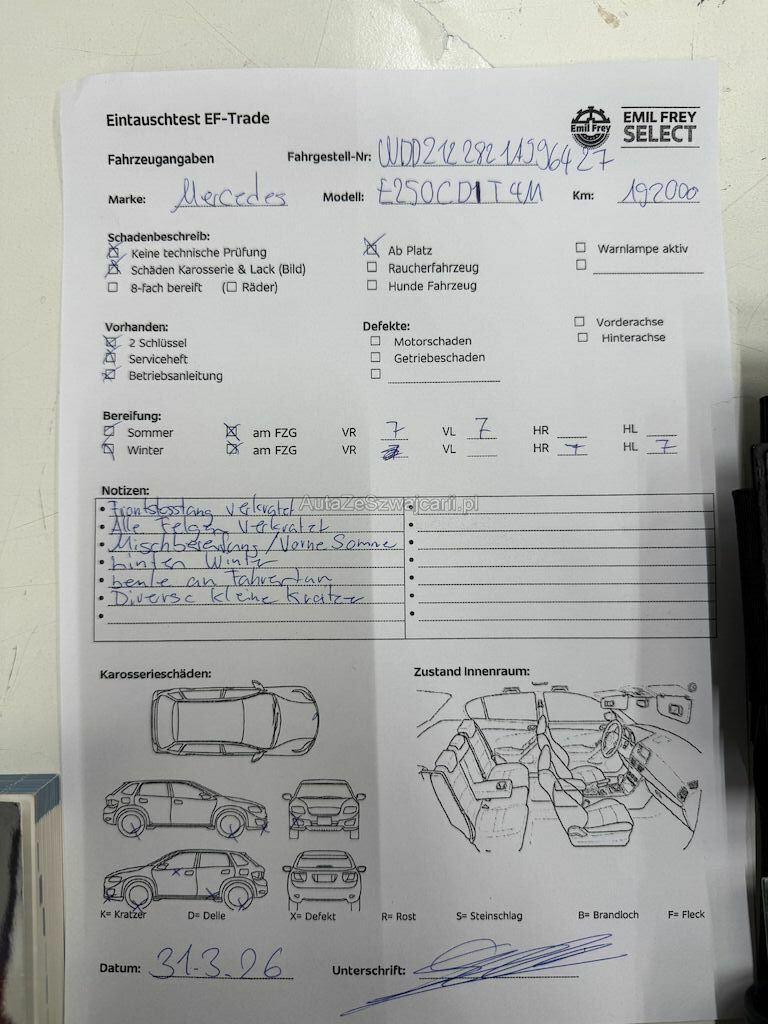 Eintauschtest EF-Trade
Emil Frey
EMIL FREY
SELECT
Fahrzeugangaben Fahrgestell-Nr: WDD2122821A996427
Marke: Mercedes Modell: E250CDI T 4M Km: 192000
Schadenbeschreib:
☒ Keine technische Prüfung ☒ Ab Platz ☐ Warnlampe aktiv
☒ Schäden Karosserie & Lack (Bild) ☐ Raucherfahrzeug ☐
☐ 8-fach bereift (☐ Räder) ☐ Hunde Fahrzeug
Vorhanden: Defekte: ☐ Vorderachse
☒ 2 Schlüssel ☐ Motorschaden ☐ Hinterachse
☒ Serviceheft ☐ Getriebeschaden
☒ Betriebsanleitung ☐
Bereifung:
☒ Sommer ☒ am FZG VR 7 VL 7 HR HL
☒ Winter ☒ am FZG VR VL HR 7 HL 7
Notizen:
AutaZeSzwajcarii.pl
• Frontstosstang verkratzt
• Alle Felgen verkratzt
• Mischbereifung / Vorne Somme
• hinten Winter
• beule an Fahrertür
• Diverse kleine Kratzer
Karosserieschäden: Zustand Innenraum:
K= Kratzer D= Delle X= Defekt R= Rost S= Steinschlag B= Brandloch F= Fleck
Datum: 31.3.26 Unterschrift: